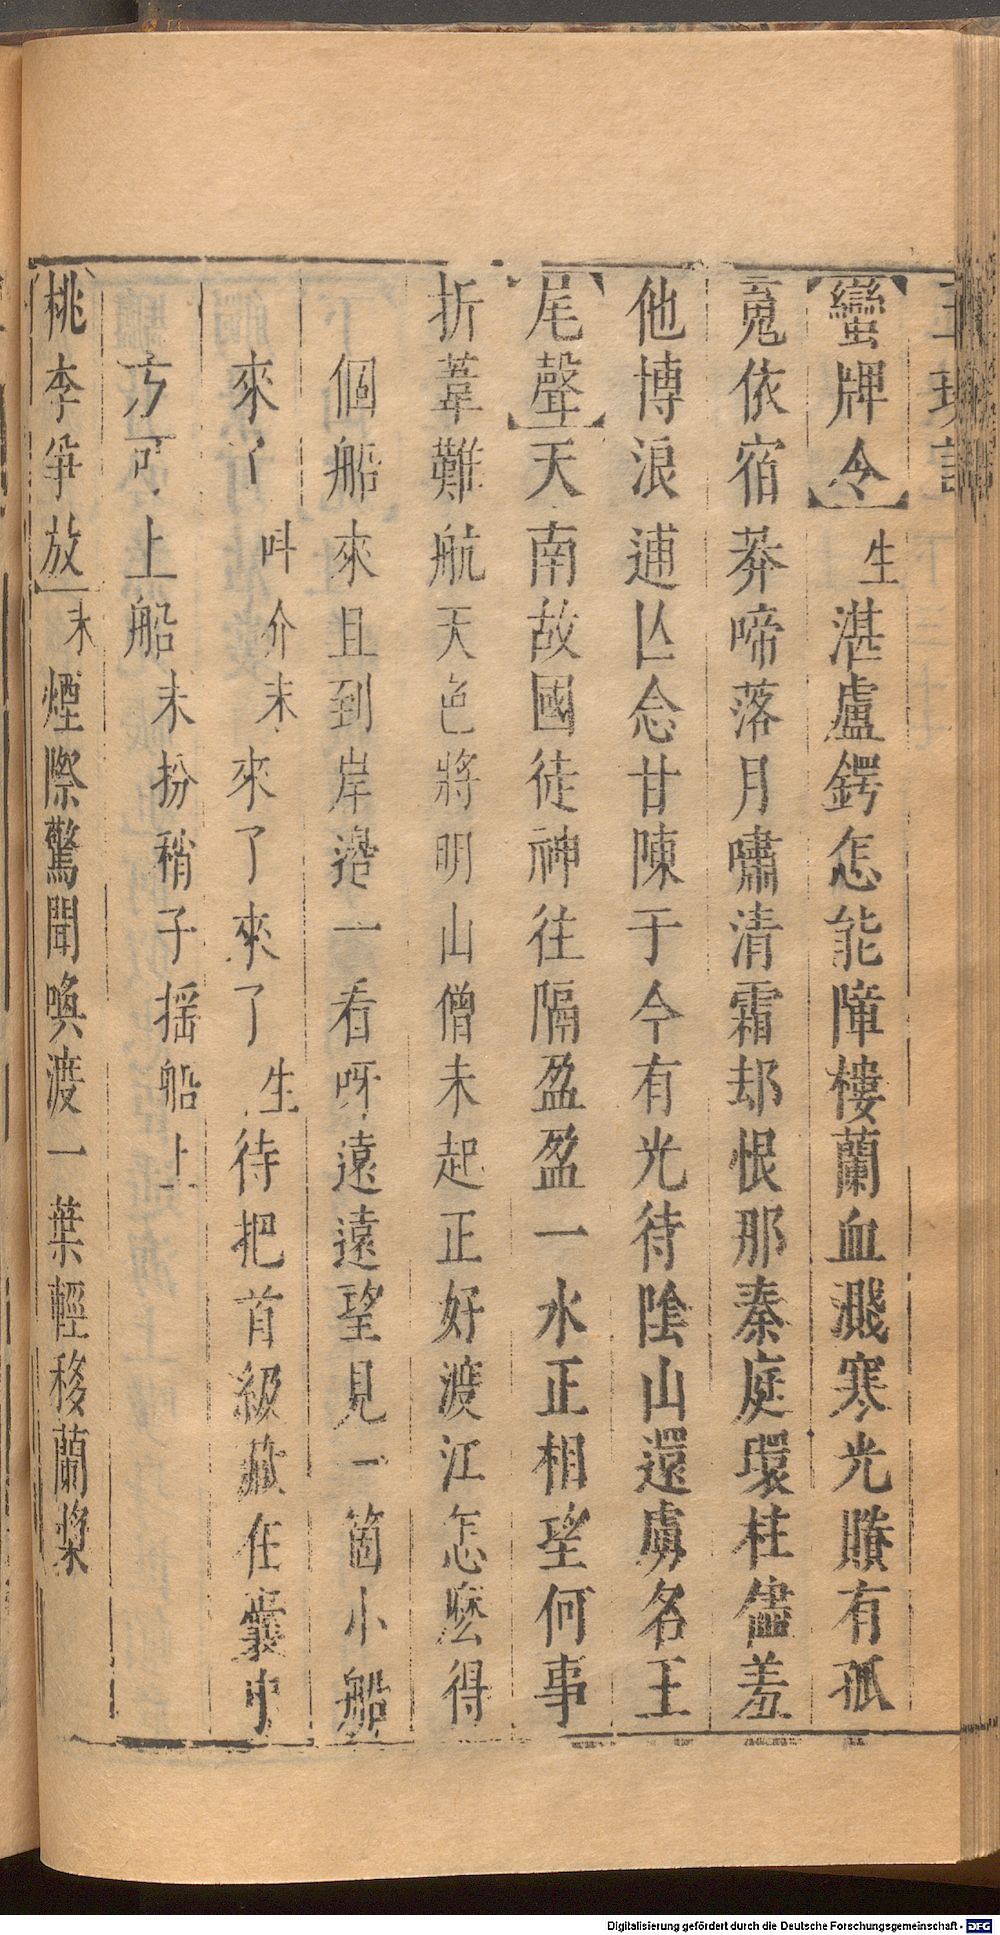 【蠻牌令】生湛盧鍔怎能障樓蘭血濺寒光賸有孤
䰟依宿莽啼落月嘯清霜却恨那秦庭環柱儘羞
他博浪逋亾念甘陳于今有光待陰山還虜名王
【尾聲】天南故國徒神往隔盈盈一水正相望何事
折葦難航天色將明山僧未起正好渡江怎麽得
個船來且到岸邉一看呀遠遠望見一箇小船
來了叫介末來了來了生待把首級藏在囊中
方可上船末扮稍子揺船上
【桃李争放】末煙際驚聞喚渡一葉輕移蘭槳
Digitalisierung gefördert durch die Deutsche Forschungsgemeinschaft - DFG